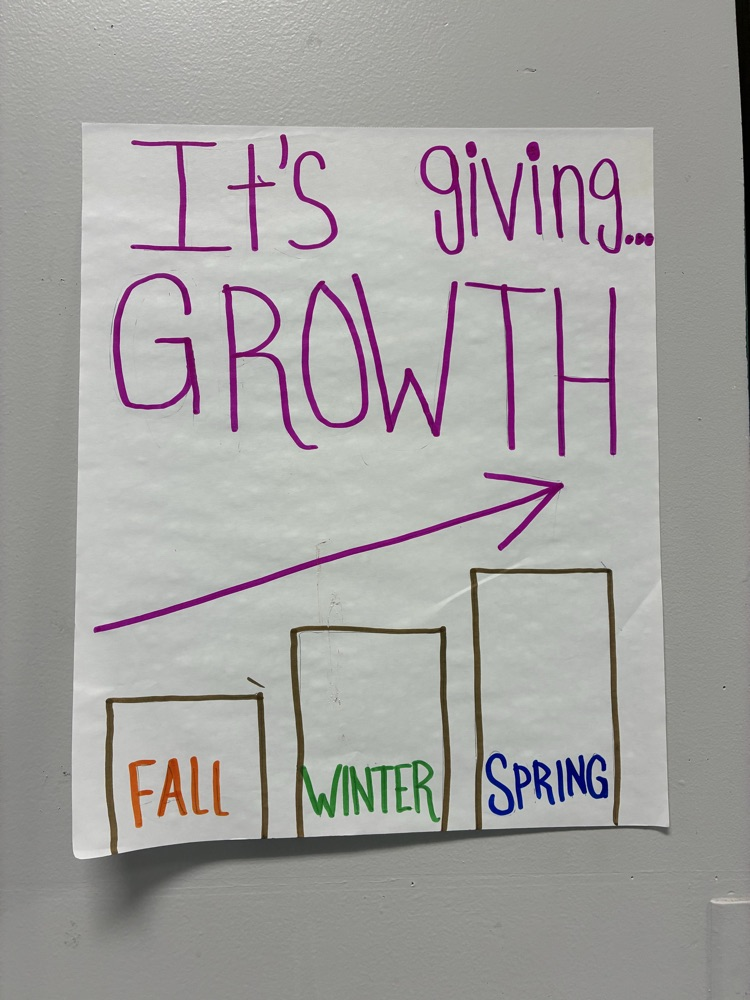 It's giving...
GROWTH
FALL WINTER SPRING